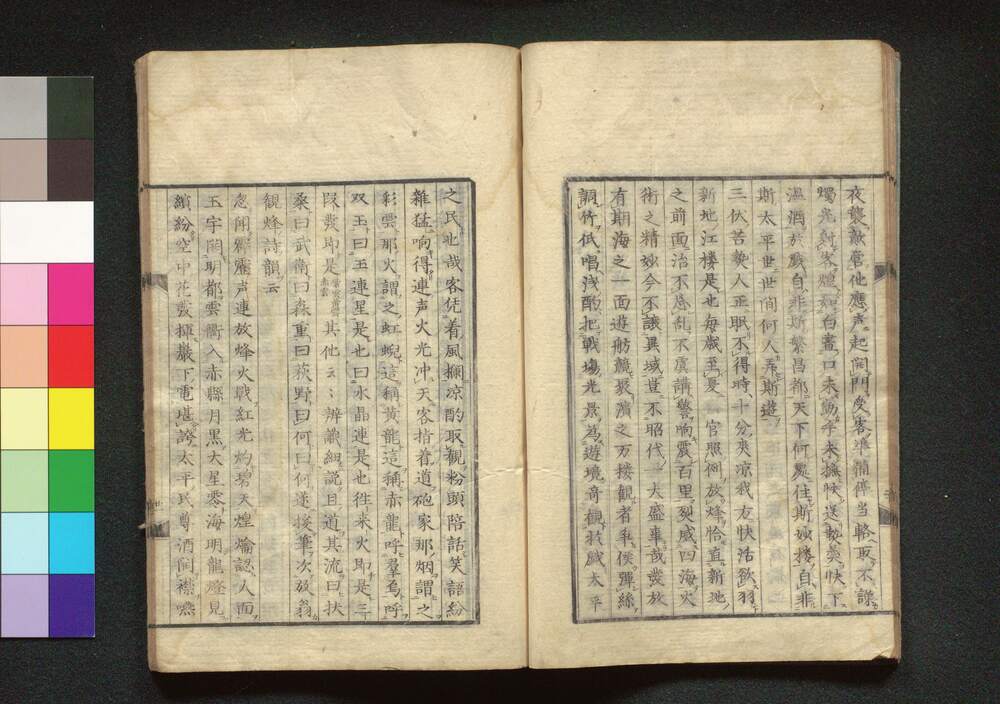 夜襲敵営他應声起開門受客準備停当輅取不謀
燭光射炭煙如白晝口未動手未搬快送敷美快下
温酒於戯自非斯繁昌都天下何處住斯妓楼自非
斯太平世世間何人弄斯遊
三伏苦熱人正眠不得時十分爽凉我友快活欲羽
新地江楼是也毎歳至夏官照例放烽恰直新地
之前面治不忘乱不虞講警响震百里烈威四海火
術之精妙今不譲異域豈不昭代一大盛事哉發放
有期海之一面遊舫競聚濱之万楼観者乗侯彈絲
調竹低唱浅酌把戦場光景為遊境奇観於戯太平
之民也哉客凭着風欄凉酌取観粉頭陪話笑語紛
雜猛响得連声火光冲天客指着道砲家那烟謂之
彩雲那火謂之虹蜺這稱黄龍這稱赤龍呼羣烏呼
双玉曰玉連星是也曰水晶連是也往来火即是三
段發即是其他云々辨識細説且道其流曰扶
桑曰武衛曰森重曰荻野曰何曰何遂援筆次放翁
観烽詩韻云
忽聞霹靂声連放烽火戰紅光灼碧天煌爚認人面
玉宇開明都雲衢入赤縣月黒大星零海明龍燈見
繽紛空中花發揮巌下電堪誇太平民尊酒同襟燕